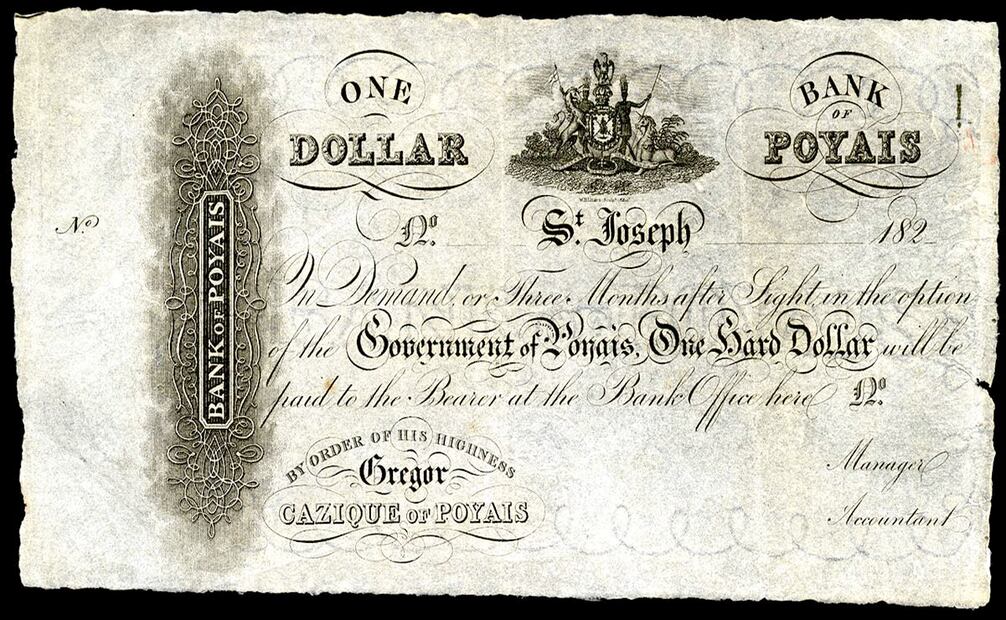 ONE
DOLLAR
BANK
OF
POYAIS
No.
No.
St. Joseph
182
On Demand, or, Three Months after Sight, in the option
of the Government of Poyais, One Hard Dollar will be
paid to the Bearer at the Bank Office here No.
BANK OF POYAIS
BY ORDER OF HIS HIGHNESS
Gregor
CAZIQUE OF POYAIS
Manager
Accountant